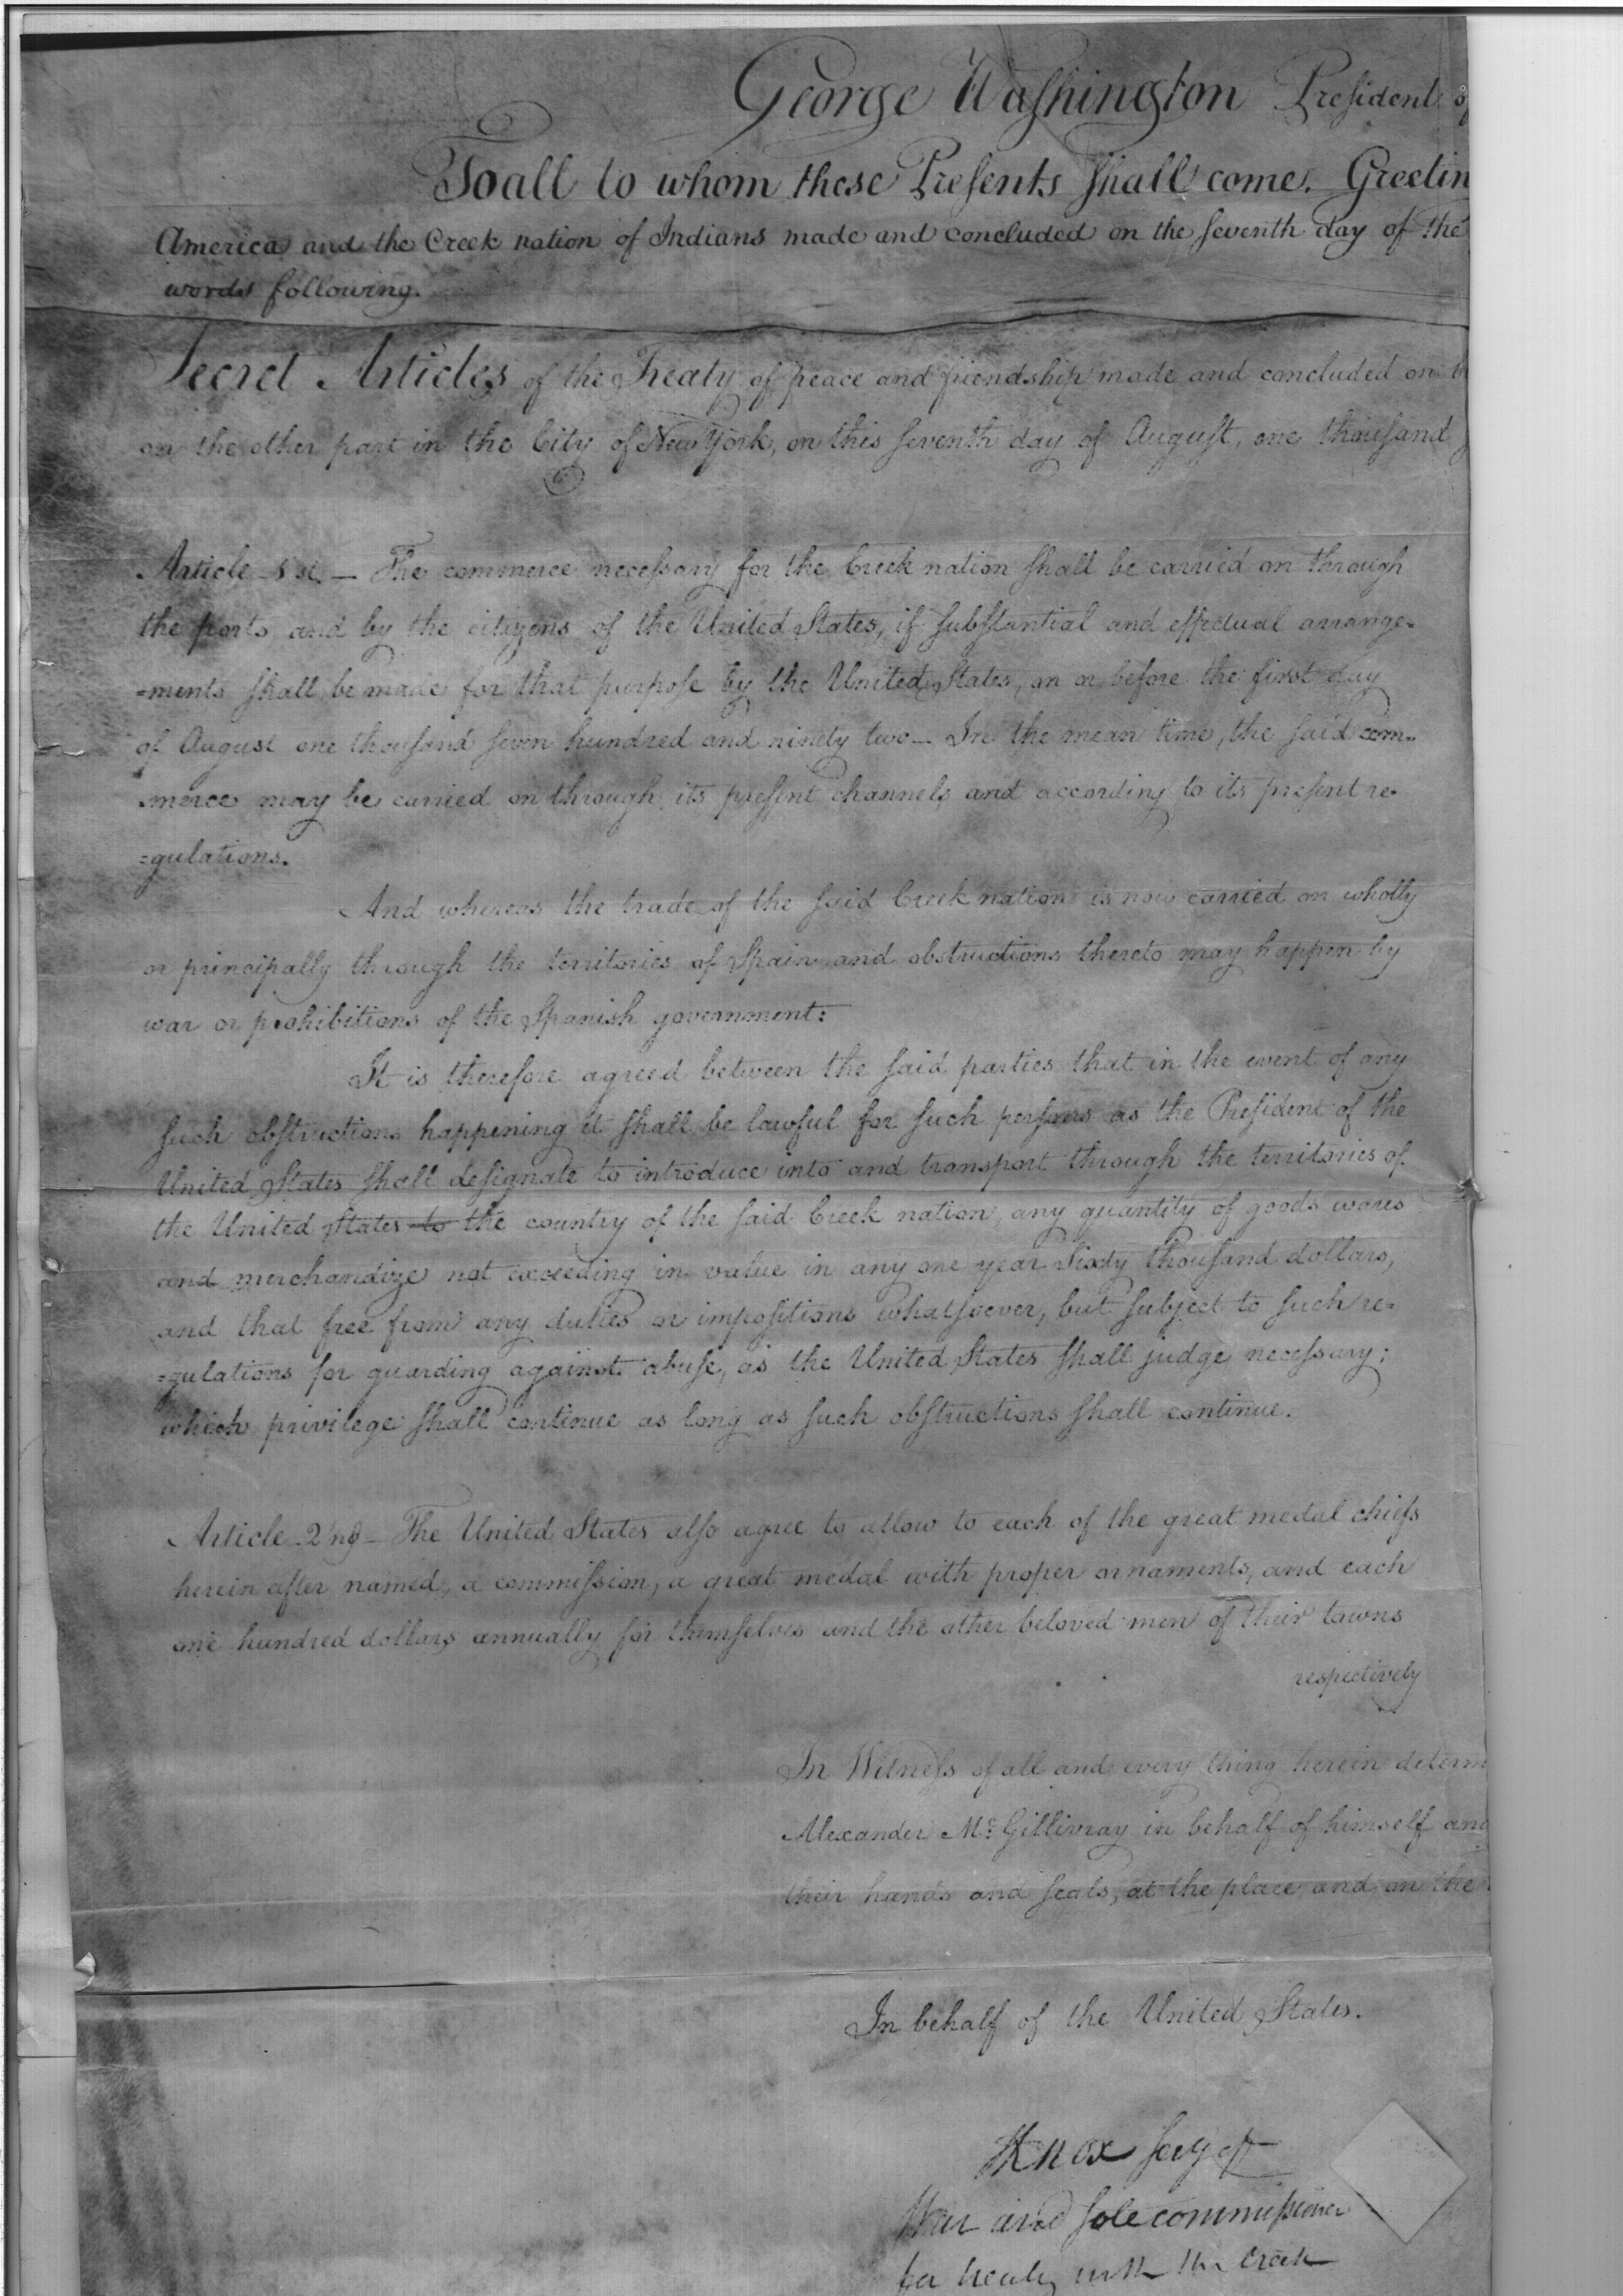 George Washington President of
To all to whom these Presents shall come. Greetin
America and the Creek nation of Indians made and concluded on the seventh day of the
words following.
Secret Articles of the Treaty of peace and friendship made and concluded on
on the other part in the City of New York, on this seventh day of August, one thousand
Article 1st. — The commerce necessary for the Creek nation shall be carried on through
the ports, and by the citizens of the United States, if substantial and effectual arrange-
=ments shall be made for that purpose by the United States, on or before the first day
of August one thousand seven hundred and ninety two — In the mean time, the said com-
merce may be carried on through its present channels and according to its present re-
=gulations.
And whereas the trade of the said Creek nation is now carried on wholly
or principally through the territories of Spain and obstructions thereto may happen by
war or prohibitions of the Spanish government:
It is therefore agreed between the said parties that in the event of any
such obstructions happening it shall be lawful for such persons as the President of the
United States shall designate to introduce into and transport through the territories of
the United States to the country of the said Creek nation, any quantity of goods wares
and merchandize not exceeding in value in any one year Sixty thousand dollars,
and that free from any duties or impositions whatsoever, but subject to such re-
=gulations for guarding against abuse, as the United States shall judge necessary;
which privilege shall continue as long as such obstructions shall continue.
Article 2nd — The United States also agree to allow to each of the great medal chiefs
herein after named, a commission, a great medal with proper ornaments, and each
one hundred dollars annually for themselves and the other beloved men of their towns
respectively
In Witness of all and every thing herein determ
Alexander McGillivray in behalf of himself and
their hands and seals, at the place and on the
In behalf of the United States.
HKnox Secy of
War and sole commissioner
for treaty with the Creek